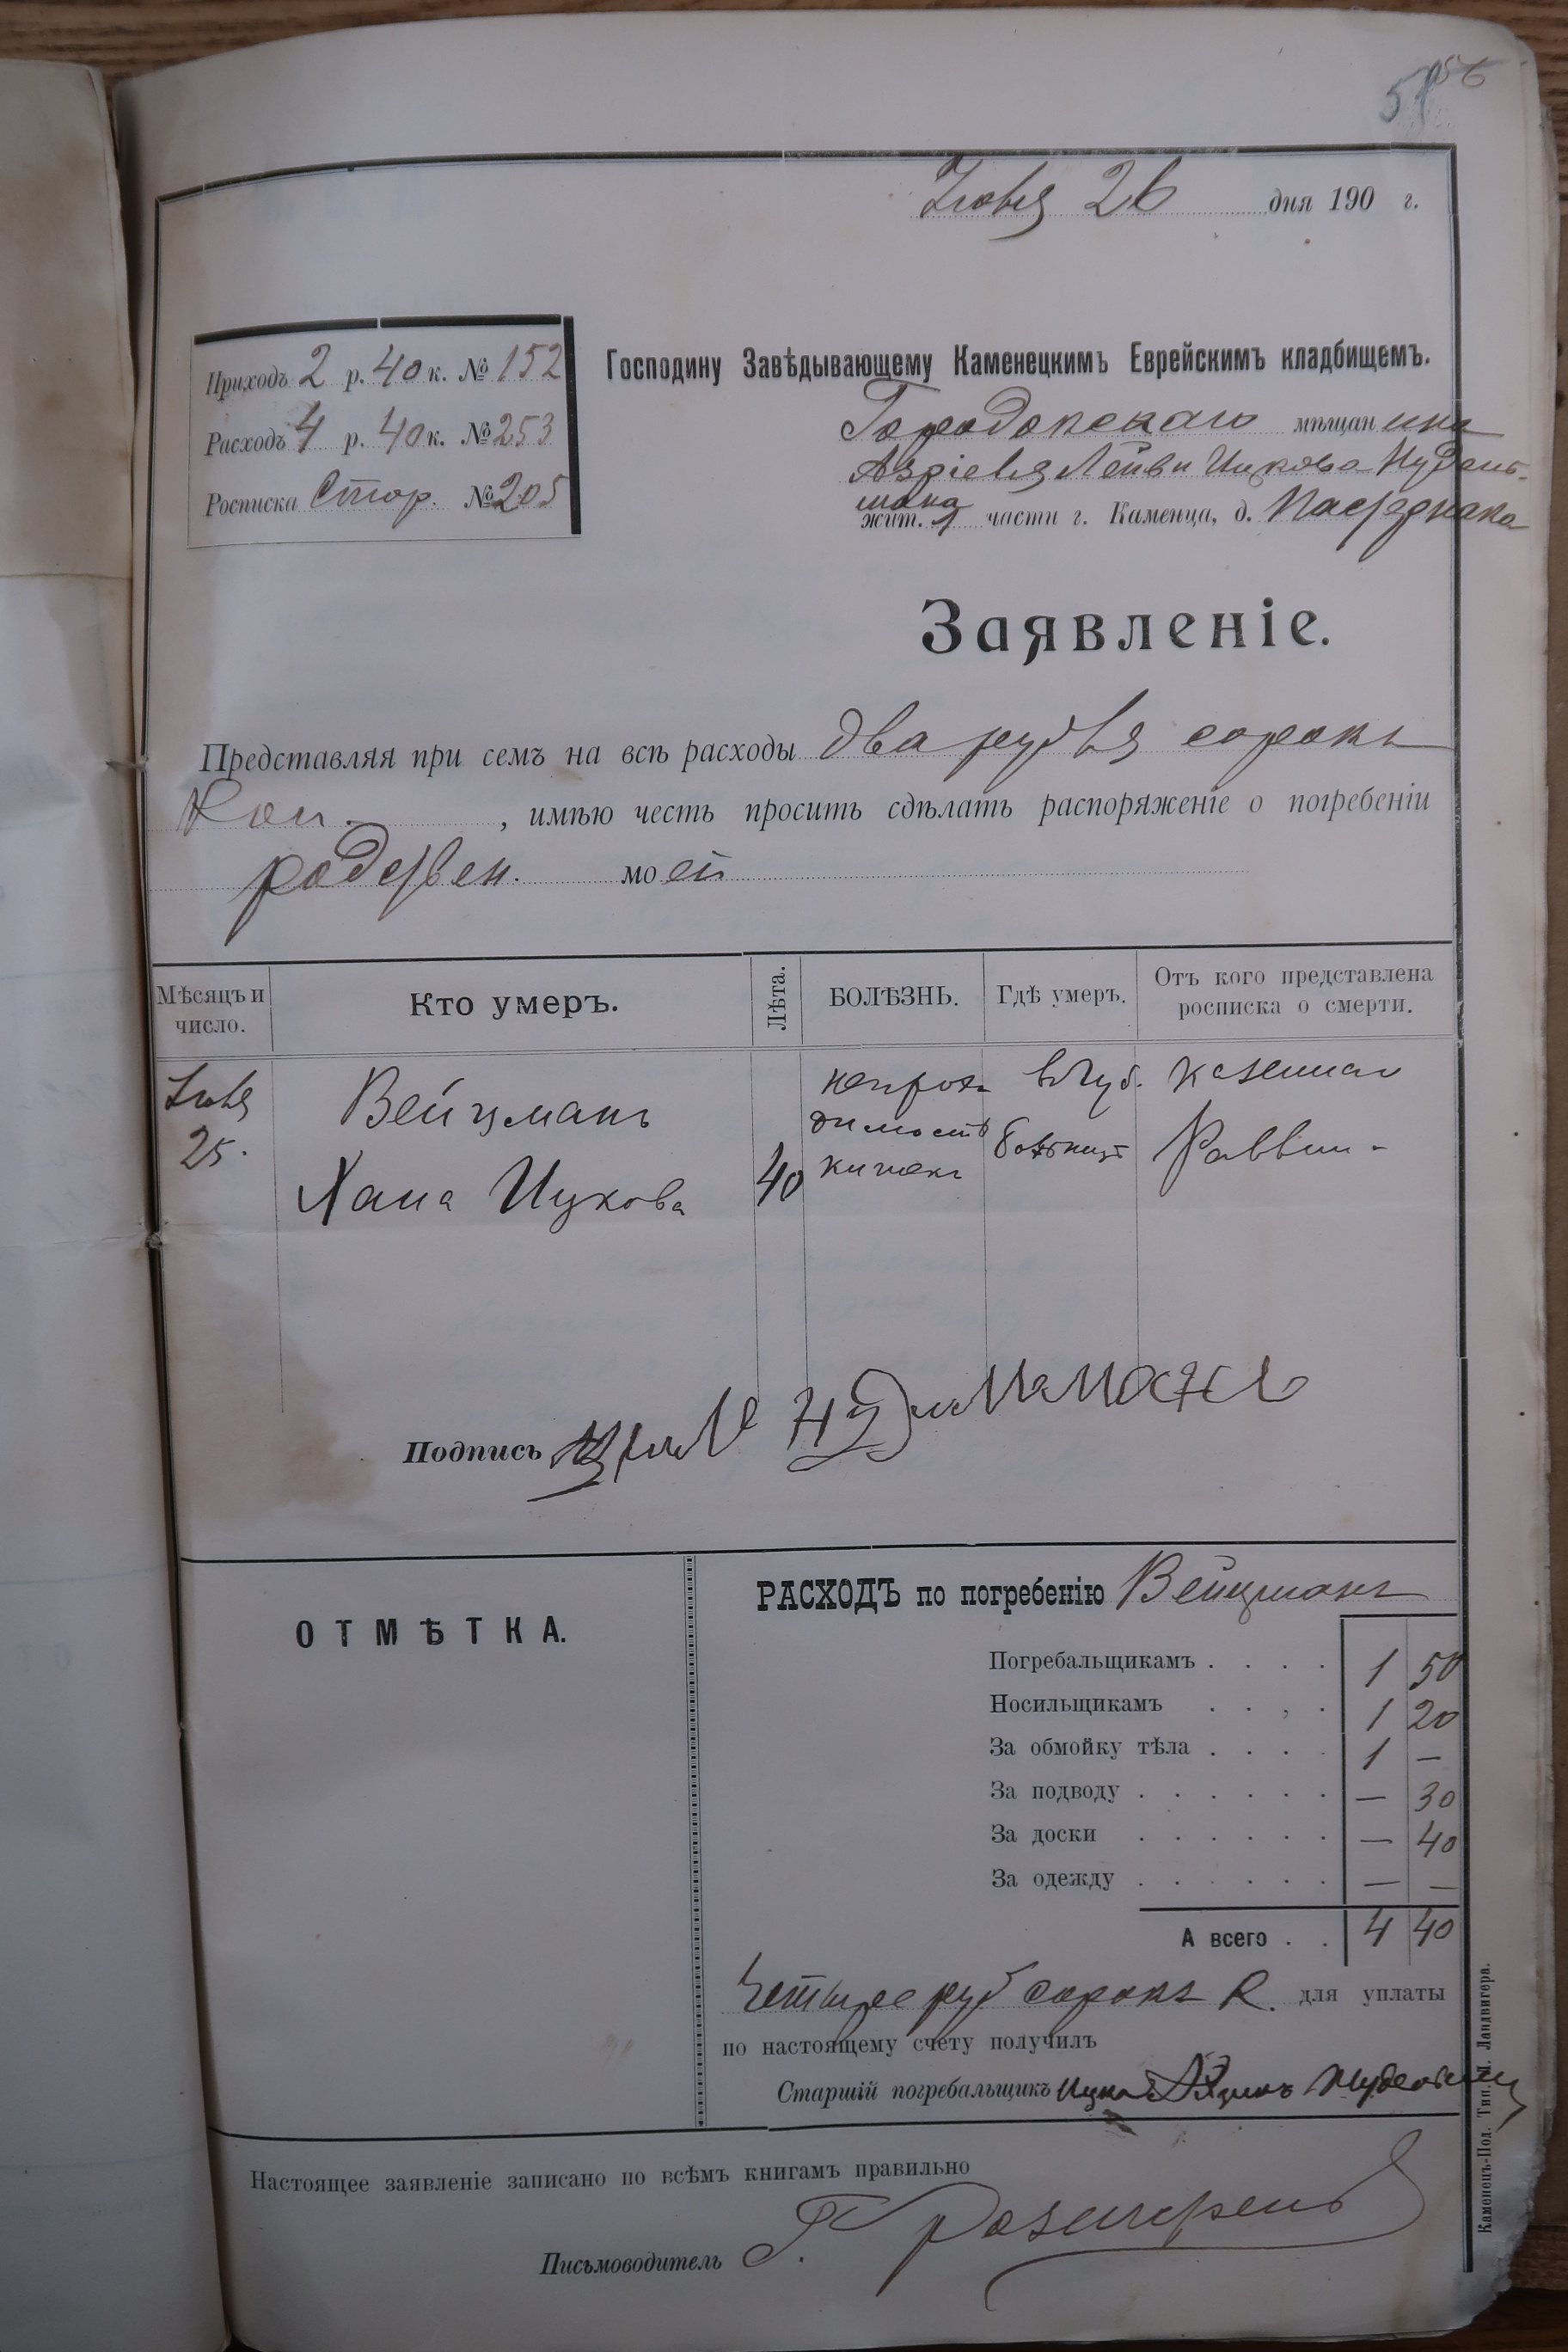 56
Іюля 26 дня 190 г.
Приходъ 2 р. 40 к. № 152
Расходъ 4 р. 40 к. № 253
Росписка Стор. № 205
Господину Завѣдывающему Каменецкимъ Еврейскимъ кладбищемъ.
Городокскаго мѣщанина
Азріеля Лейви Ицкова Нудель-
мана
жит. 1 части г. Каменца, д.
Заявленіе.
Представляя при семъ на всѣ расходы два рубля сорокъ
коп. , имѣю честь просить сдѣлать распоряженіе о погребеніи
родствен. моей
Мѣсяцъ и число. Кто умеръ. Лѣта. БОЛѢЗНЬ. Гдѣ умеръ. Отъ кого представлена росписка о смерти.
Іюля Вейцманъ непрохо въ Губ. казеннаго
25. Хана Ицкова 40 димость кишекъ больницѣ Раввин-
Подпись
ОТМѢТКА.
РАСХОДЪ по погребенію Вейцманъ
Погребальщикамъ . . . . 1 50
Носильщикамъ . . , . 1 20
За обмойку тѣла . . . . 1 —
За подводу . . . . . . — 30
За доски . . . . . . — 40
За одежду . . . . . . — —
А всего . . 4 40
Четыре руб сорокъ К. для уплаты
по настоящему счету получилъ
Старшій погребальщикъ Ицко
Настоящее заявленіе записано по всѣмъ книгамъ правильно
Письмоводитель Г.
Каменецъ-Под. Тип. Л. Ландвигера.